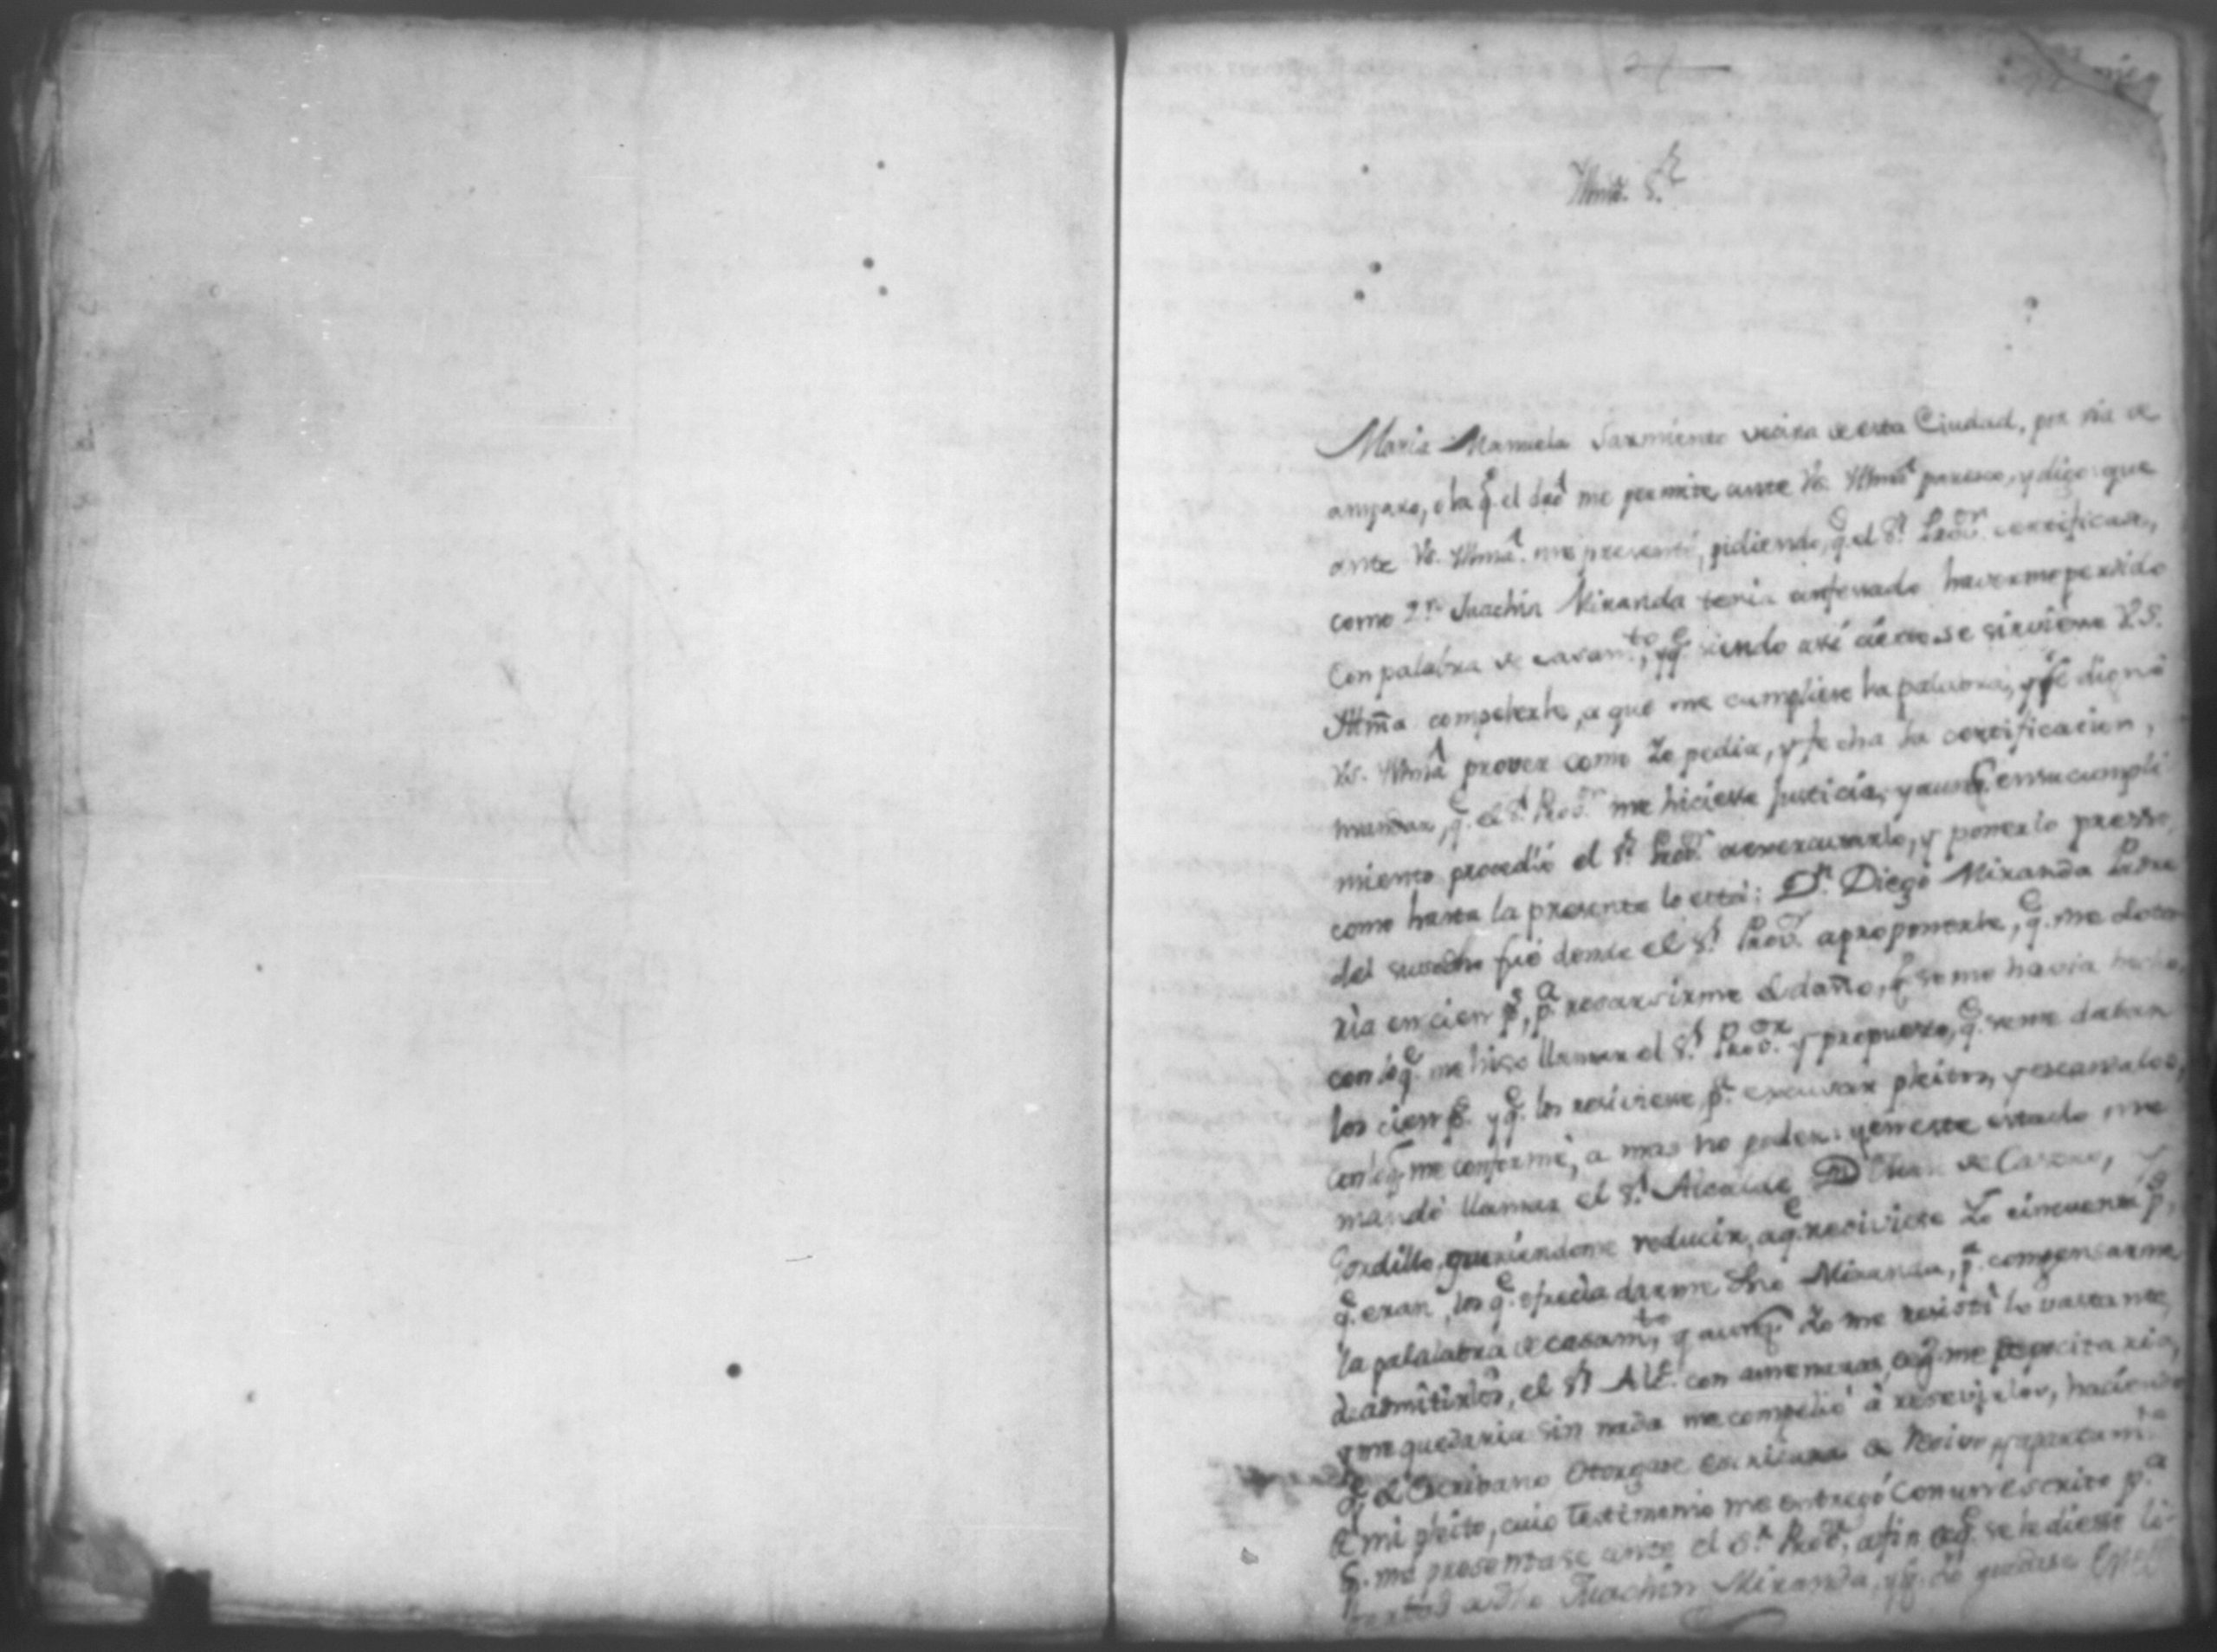 Illmo. S.r
Maria Manuela Sarmiento vecina de esta Ciudad, por via de
amparo, o la q.e el dro me permite ante Vs. Illma paresco, y digo: que
ante Vs. Illma. me presenté, pidiendo, q.e el S.r Prov.or certificase,
como D.n Juachin Miranda tenia confesado havermepervido
Con palabra de casam.to, y q.e siendo asi cierto se sirviese V.S.
Illma competerle, a que me cumpliese la palabra, y se dignó
Vs. Illma prover como Lo pedia, y fecha la certificacion,
mandar, q.e el S.r Prov.or me hiciese Justicia, y aunq.e ensucumpli
miento procedió el S.r Prov.or y ponerlo presso,
como hasta la presente lo está: D.n Diego Miranda Padre
del susodho fué donde el S.r Prov.or aproponerle, q.e me dota
ria en cien p.s, p.a resarsirme el daño, q.e se me havia hecho,
con lo q.e me hiso llamar el S.r Prov.or y propuesto, q.e seme daban
los cien p.s y q.e los resiviese, p.a escusar pleitos, y escandalos,
con lo q.e me conformé, a mas no poder: y eneste estado me
mandó llamar el S.r Alcalde D.n de Castro, y
Gordillo, queriendome reducir, a q.e resiviese Lo cincuenta p.s,
q.e eran los q.e ofrecia darme dho Miranda, p.a compensarme
la palalabra de casam.to, y aunq.e Lo me resistí lo vastante,
de admitirlos, el S.r Alc.e con amenasas, a q.e me
y me quedaria sin nada me compelió á resevirlos, haciendo
q.e el Escribano Otorgase escritura de Resivo, y apartam.to
de mi pleito, cuio Testimonio me entregó con un escrito p.a
q.e me presentase ante el S.r Prov.or, afin de q.e se le diesse li-
bertad a dho Juachin Miranda, y q.e Lo quedase